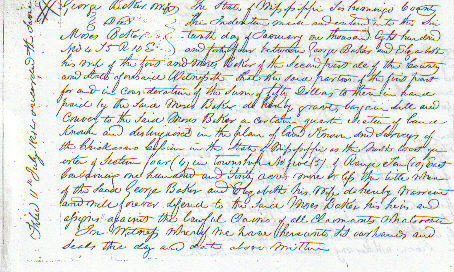 George Baker & wife The State of Mississippi Tishomingo County
To Deed This Indenture made and entered into the
Moses Baker day of January one thousand Eight hundred
4 5 R 10 E and forty four between George Baker and Elizabeth
his wife of the first part and Moses Baker of the Second part all of the County
and State aforesaid Witnesseth that the said parties of the first part
for and in Consideration of the Sum of fifty Dollars to them in hand
paid by the Said Moses Baker do hereby grant bargain sell and
Convey to the Said Moses Baker a certain quarter Section of land
Known and distinguished in the plan of land Known and Surveys of
the Chickasaw Cession in the State of Mississippi as the North west
of Section four (4) in township No five (5) of Range Ten (10) East
Containing one hundred and Sixty acres more or less the title
of the Said George Baker and Elizabeth his wife do hereby Warrant
and will forever defend to the Said Moses Baker his heirs and
assigns against the lawful Claims of all Claimants Whatever
In Witness whereof we have hereunto set our hands and
seals this day and date above written
Filed 11th July 1844 and